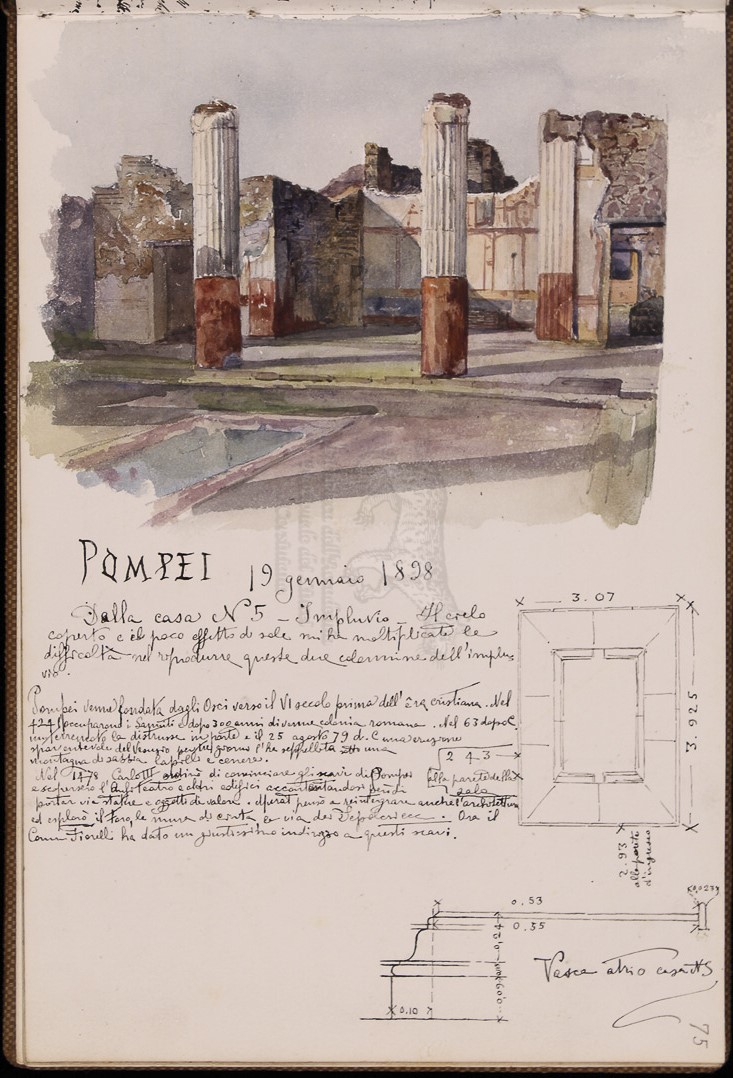 POMPEI 19 gennaio 1898
Dalla casa N° 5 - Impluvio - Il cielo
coperto e il poco effetto di sole mi ha moltiplicate le
difficoltà nel riprodurre queste due colonnine dell'implu-
vio.
Pompei venne fondata dagli Osci verso il VI secolo prima dell'èra cristiana. Nel
424 l'occuparono i Sanniti e dopo 300 anni divenne colonia romana. Nel 63 dopo C.
un terremoto la distrusse in parte e il 25 agosto 79 d. C una eruzione
spaventevole del Vesuvio l'ha seppellita una
montagna di sabbia lapilli e cenere.
Nel Carlo III ordinò di cominciare gli scavi di Pompei
e scopersero l'Anfiteatro e altri edifici accontentandosi
portar via statue e oggetti di valore. Murat pensò a reintegrare anche l'architettura
ed esplorò il foro, le mura di cinta e via dei Sepolcri ecc. Ora il
Comm. Fiorelli ha dato un giustissimo indirizzo a questi scavi.
3.07
3.925
2 43
alla parete della
sala
2.93
alla parete
d'ingresso
0.53
0.55
0.10
Vasca atrio casa N5
75